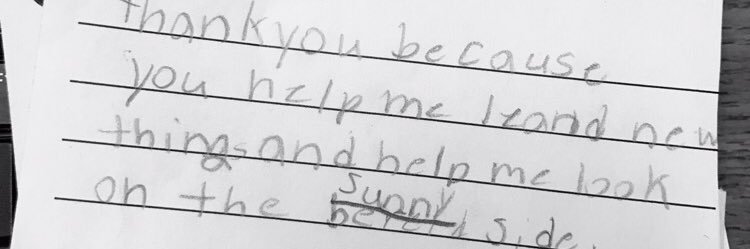 thank you because
you help me leand new
things and help me look
on the sunny side.